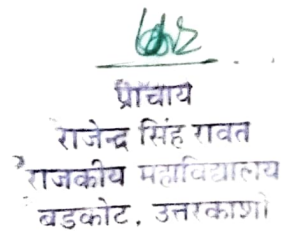 प्राचार्य
राजेन्द्र सिंह रावत
राजकीय महाविद्यालय
बडकोट, उत्तरकाशी